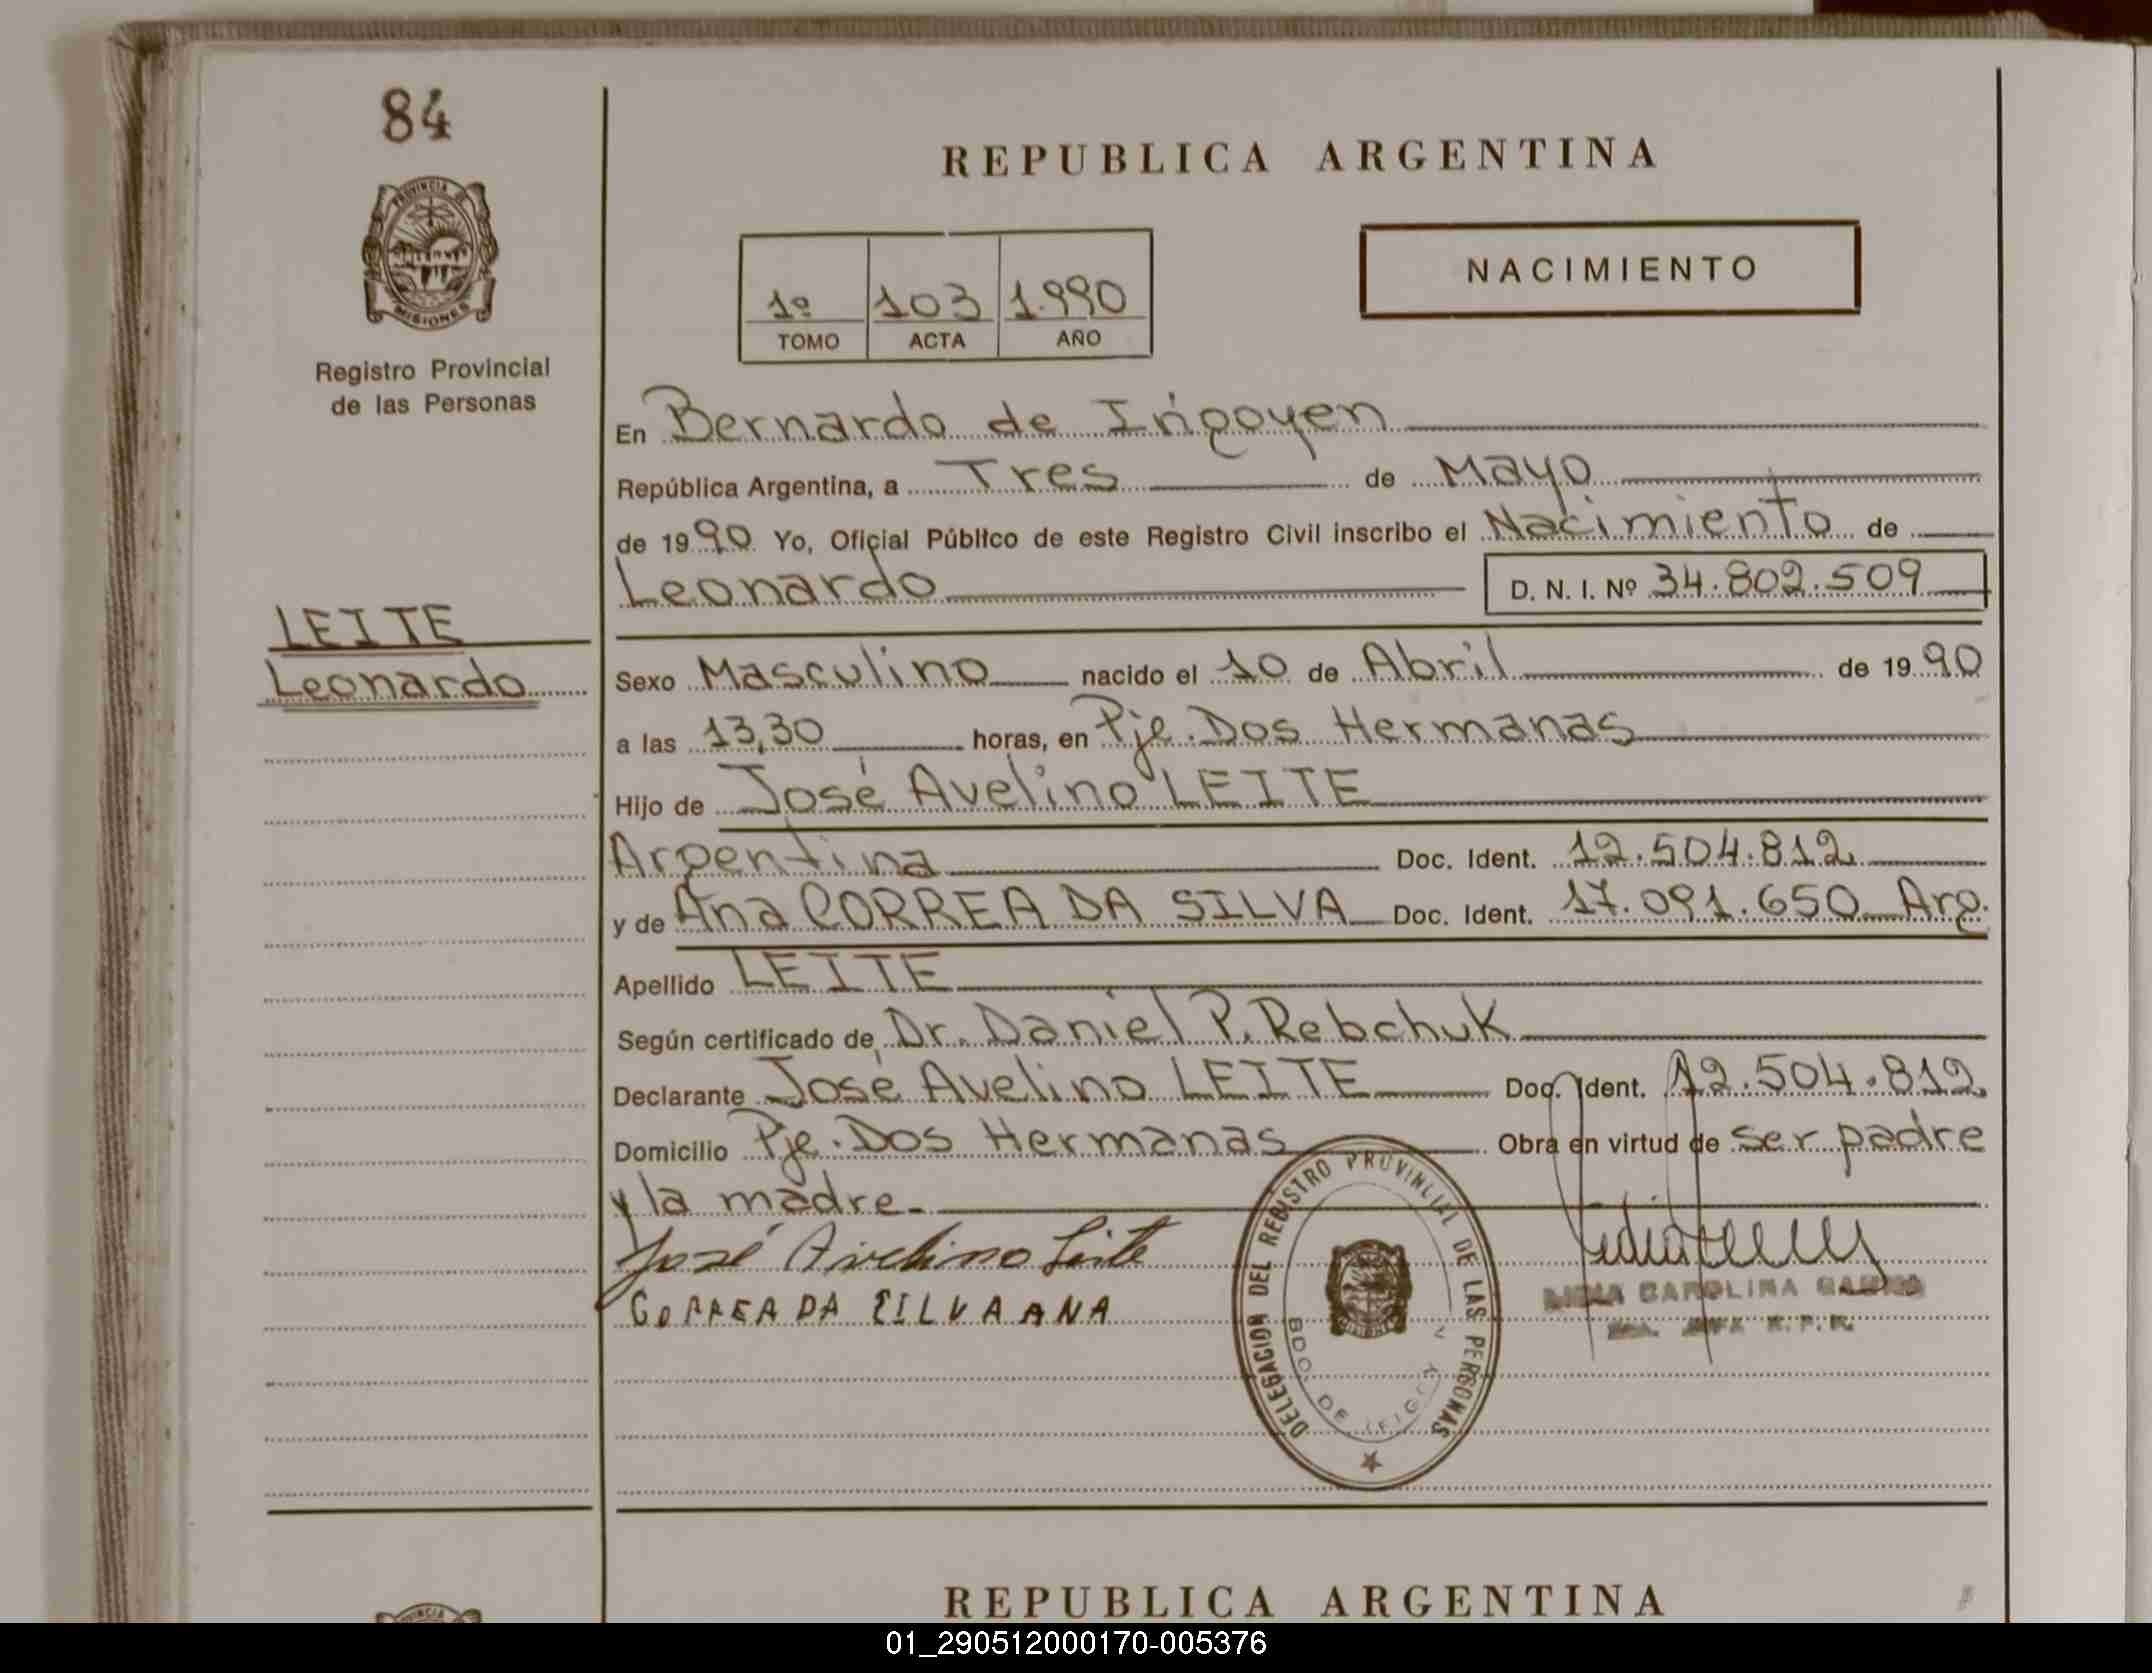 84
PROVINCIA DE
MISIONES
Registro Provincial
de las Personas
LEITE
Leonardo
REPUBLICA ARGENTINA
1º 103 1.990
TOMO ACTA AÑO
NACIMIENTO
En Bernardo de Irigoyen
República Argentina, a Tres de Mayo
de 1990 Yo, Oficial Público de este Registro Civil inscribo el Nacimiento de
Leonardo D. N. I. Nº 34.802.509
Sexo Masculino nacido el 10 de Abril de 1990
a las 13,30 horas, en Pje. Dos Hermanas
Hijo de José Avelino LEITE
Argentina Doc. Ident. 12.504.812
y de Ana CORREA DA SILVA Doc. Ident. 17.091.650 Arg.
Apellido LEITE
Según certificado de, Dr. Daniel P. Rebchuk
Declarante José Avelino LEITE Doc. Ident. 12.504.812
Domicilio Pje. Dos Hermanas Obra en virtud de ser padre
y la madre.
José Avelino Leite
CORREA DA SILVA ANA
DELEGACION DEL REGISTRO PROVINCIAL DE LAS PERSONAS
BDO. DE
LIDIA CAROLINA
R.P.P.
REPUBLICA ARGENTINA
01_290512000170-005376